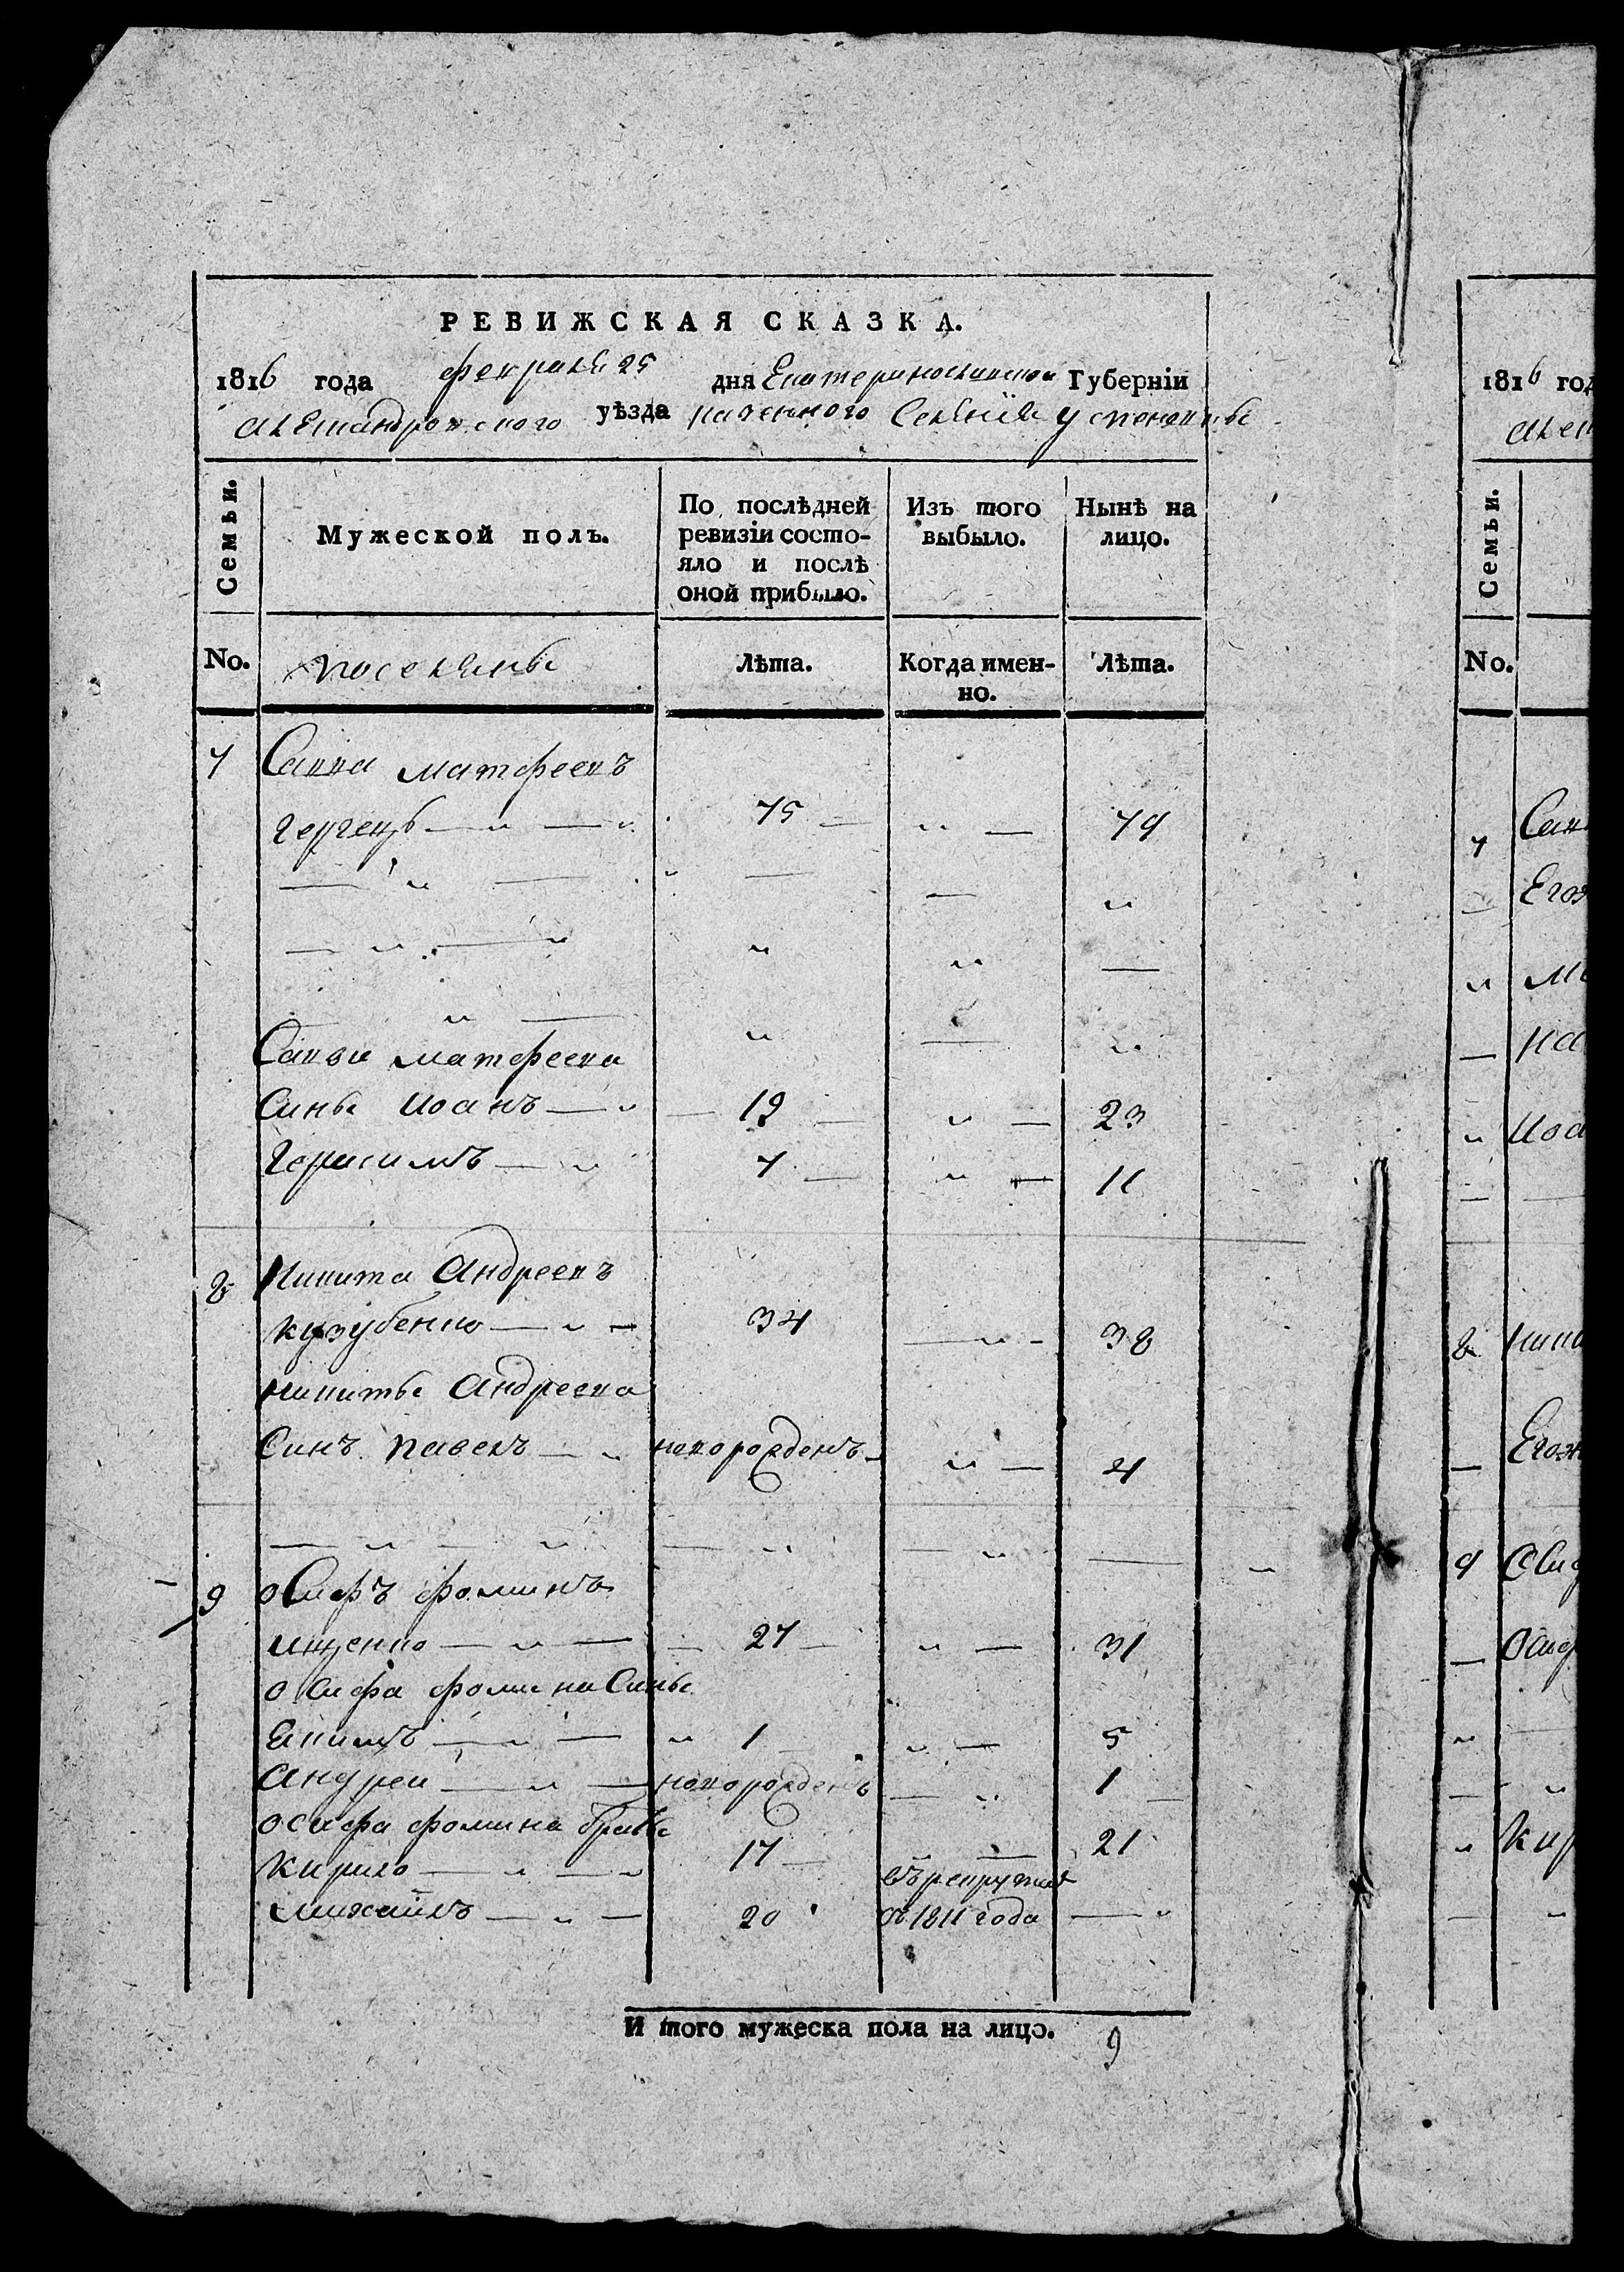 РЕВИЖСКАЯ СКАЗКА.
1816 года февраля 25 дня Екатеринославской Губерніи
Александровского уѣзда казенного Селения Успеновки
Семьи.
Мужеской полъ.
По послѣдней ревизіи состо-
яло и послѣ
оной прибыло.
Изъ того
выбыло.
Нынѣ на
лицо.
No.
поселяне
Лѣта.
Когда имен-
но.
Лѣта.
7 Савва матфеевъ
75 79
Саввы матфеева
Сины Иоанъ 19 23
Герасимъ 7 11
8 Никита Андреевъ
34 38
никиты Андреева
Синъ павелъ новорожденъ 4
9 осифъ фоминъ
ищенко 27 31
осифа фомина Сины
Екимъ 1 5
Андреи новорожденъ 1
осифа фомина браты
кирило 17 21
михаилъ 20 въ рекруты в 1811 года
И того мужеска пола на лицо. 9
1816 год
Семьи.
No.
7
8
Егож
9
осиф